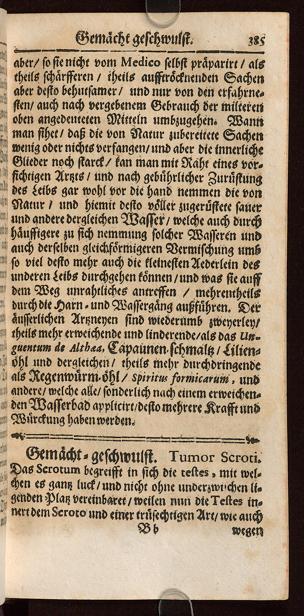 Gemächt geschwulst. 385
aber/ so sie nicht vom Medico selbst präparirt/ als
theils schärfferen/ theils auffröcknenden Sachen
aber desto behutsamer/ und nur von den erfahrne-
sten/ auch nach vergebenem Gebrauch der milteren
oben angedeuteten Mitteln umbzugehen. Wann
man sihet/ daß die von Natur zubereitete Sachen
wenig oder nichts verfangen/ und aber die innerliche
Glieder noch starck/ kan man mit Raht eines vor-
sichtigen Artzts/ und nach gebührlicher Zurüstung
des Leibs gar wohl vor die hand nemmen die von
Natur/ und hiemit desto völler zugerüstete sauer
und andere dergleichen Wasser/ welche auch durch
häuffigere zu sich nemmung solcher Wasseren und
auch derselben gleichförmigeren Vermischung umb
so viel desto mehr auch die kleinesten Aederlein des
underen Leibs durchgehen können/ und was sie auff
dem Weg unrahtliches antreffen/ mehrentheils
durch die Harn- und Wassergäng außführen. Der
äusserlichen Artzneyen sind wiederumb zweyerley/
theils mehr erweichende und linderende/ als das Un-
guentum de Althæa, Capaunen-schmaltz/ Lilien-
öhl und dergleichen/ theils mehr durchdringende
als Regenwürm-öhl/ Spiritus formicarum, und
andere/ welche alle/ sonderlich nach einem erweichen-
den Wasserbad applicirt/ desto mehrere Krafft und
Würckung haben werden.
Gemächt-geschwulst. Tumor Scroti.
Das Scrotum begreifft in sich die testes, mit wel-
chen es gantz luck/ und nicht ohne underzwischen li-
genden Platz vereinbaret/ weilen nun die Testes in-
nert dem Scroto und einer trüsechtigen Art/ wie auch
Bb wegen